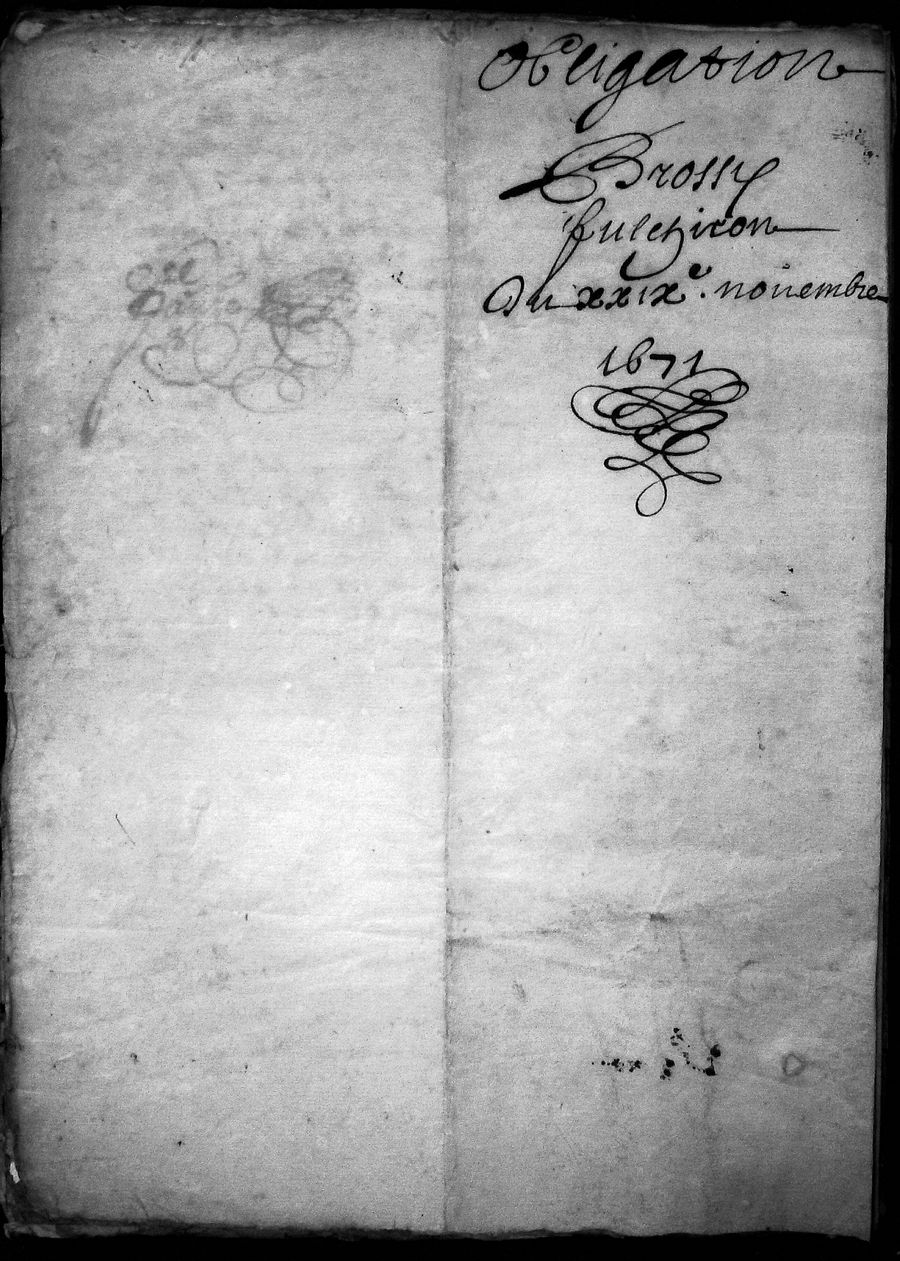 Obligation
Brossy
fulchiron
Du xxixe. nouembre
1671